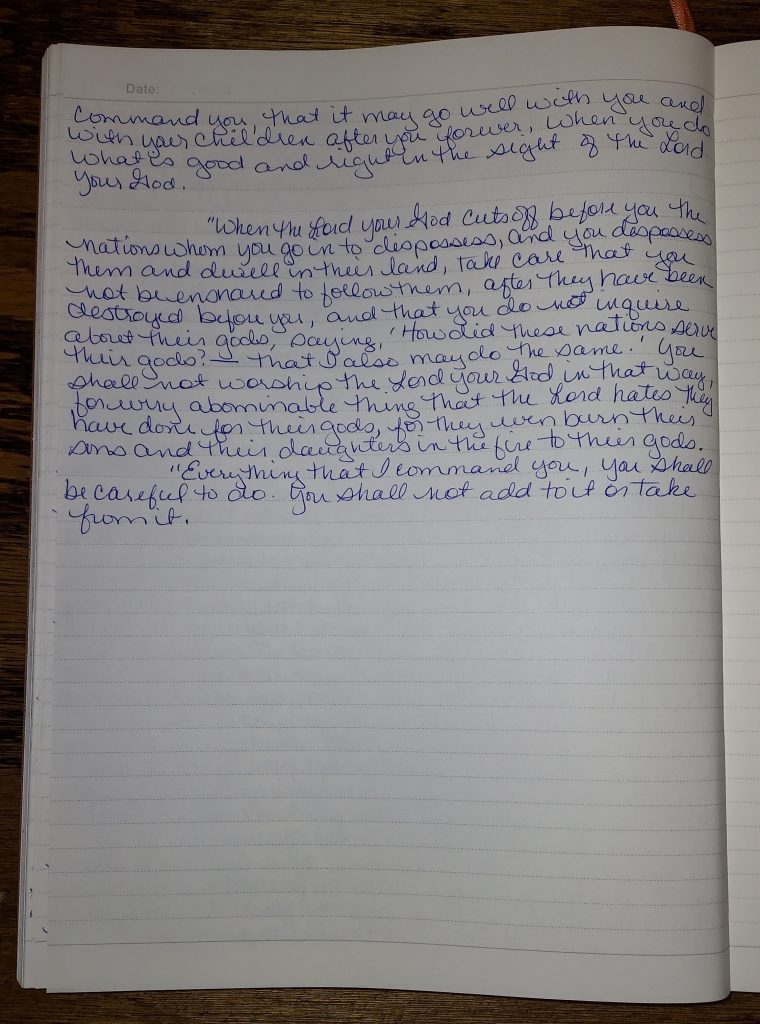 Date:
Command you, that it may go well with you and
with your children after you forever, when you do
what is good and right in the sight of the Lord
your God.
"When the Lord your God cuts off before you the
nations whom you go in to dispossess, and you dispossess
them and dwell in their land, take care that you
not be ensnared to follow them, after they have been
destroyed before you, and that you do not inquire
about their gods, saying, 'How did these nations serve
their gods? — that I also may do the same.' You
shall not worship the Lord your God in that way,
for every abominable thing that the Lord hates they
have done for their gods, for they even burn their
sons and their daughters in the fire to their gods.
"Everything that I command you, you shall
be careful to do. You shall not add to it or take
from it.